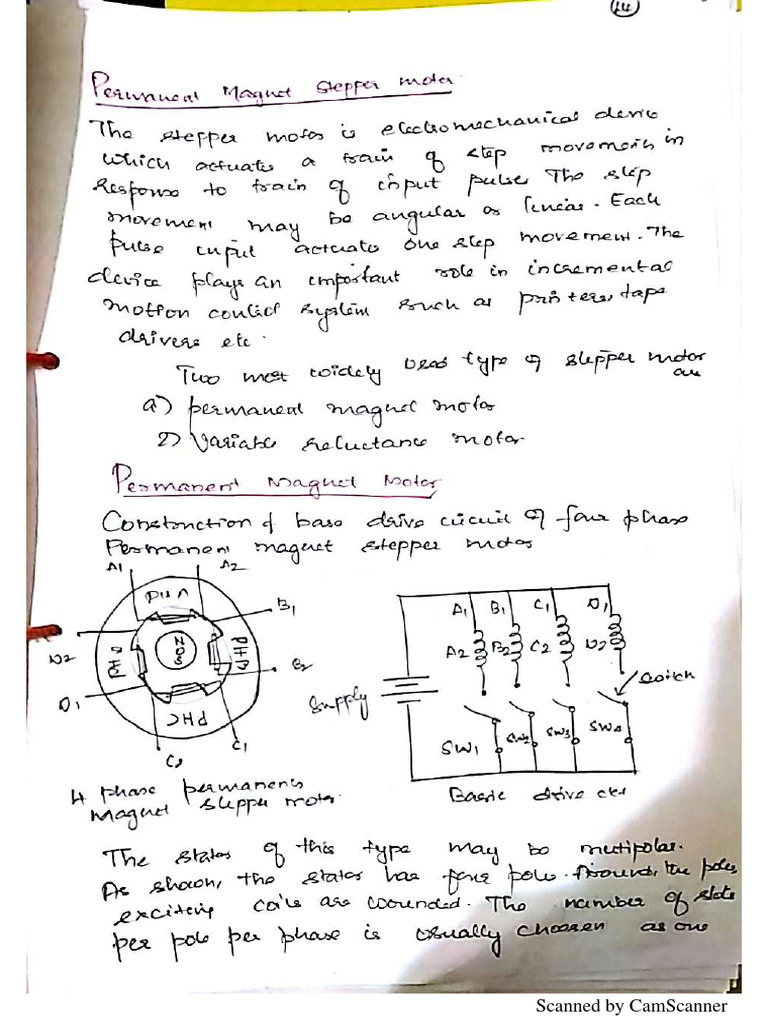 14
Permanent Magnet Stepper motor.
The stepper motor is electromechanical device
which actuates a train of step movements in
Response to train of input pulse The step
movement may be angular or linear. Each
pulse input actuate one step movement. The
device plays an important role in incremental
motion control system such as printers, tape
drivers etc.
Two most widely used type of stepper motor
are
a) permanent magnet motor
2) Variable reluctance motor.
Permanent Magnet Motor
Construction & base drive circuit of four phase
Permanent magnet stepper motor
A1 A2
PHA
B1
D2
PHD
PHB
B2
D1
PHC
C2 C1
4 phase permanent
Magnet stepper motor.
A1 B1 C1 D1
A2 B2 C2 D2
Supply
Switch
SW1 SW2 SW3 SW4
Basic drive ckt
The stator of this type may be multipolar.
As shown, the stator has four pole. Around, the poles,
exciting coils are wounded. The number of slots
per pole per phase is usually choosen as one
Scanned by CamScanner